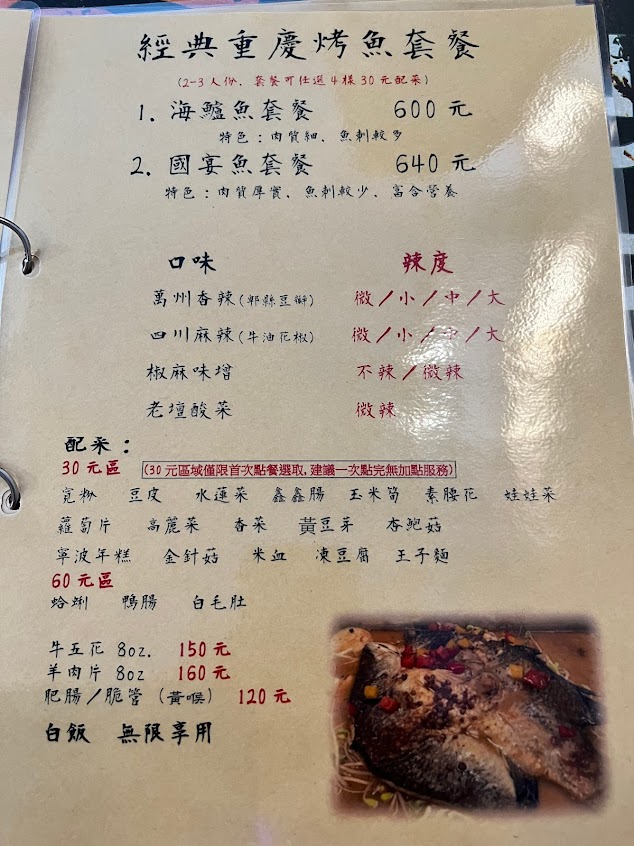 經典重慶烤魚套餐
(2-3人份、套餐可任選4樣30元配菜)
1. 海鱸魚套餐 600元
特色：肉質細、魚刺較多
2. 國宴魚套餐 640元
特色：肉質厚實、魚刺較少、富含營養
口味 辣度
萬州香辣(郫縣豆瓣) 微/小/中/大
四川麻辣(牛油花椒) 微/小/中/大
椒麻味增 不辣/微辣
老壇酸菜 微辣
配菜：
30元區 (30元區域僅限首次點餐選取,建議一次點完無加點服務)
寬粉 豆皮 水蓮菜 鑫鑫腸 玉米筍 素腰花 娃娃菜
蘿蔔片 高麗菜 香菜 黃豆芽 杏鮑菇
寧波年糕 金針菇 米血 凍豆腐 王子麵
60元區
蛤蜊 鴨腸 白毛肚
牛五花 8oz. 150元
羊肉片 8oz 160元
肥腸/脆管 (黃喉) 120元
白飯 無限享用